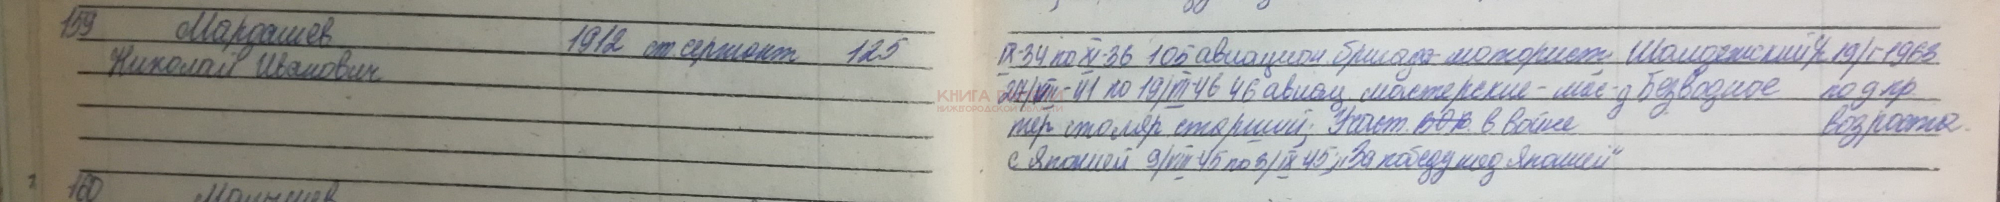 159 Мардашев 1912 ст. сержант 125
Николай Иванович
IX-34 по XI-36 105 авиацион бригада моторист 19/I-1963
27/VIII-41 по 19/III-46 46 авиац мастерские - мас- д Безводное по д пр
тер столяр старший; Участ. ВОВ. в войне возраста.
с Японией 9/VIII 45 по 3/IX 45; "За победу над Японией"
160
КНИГА
НИЖЕГОРОДСКОЙ